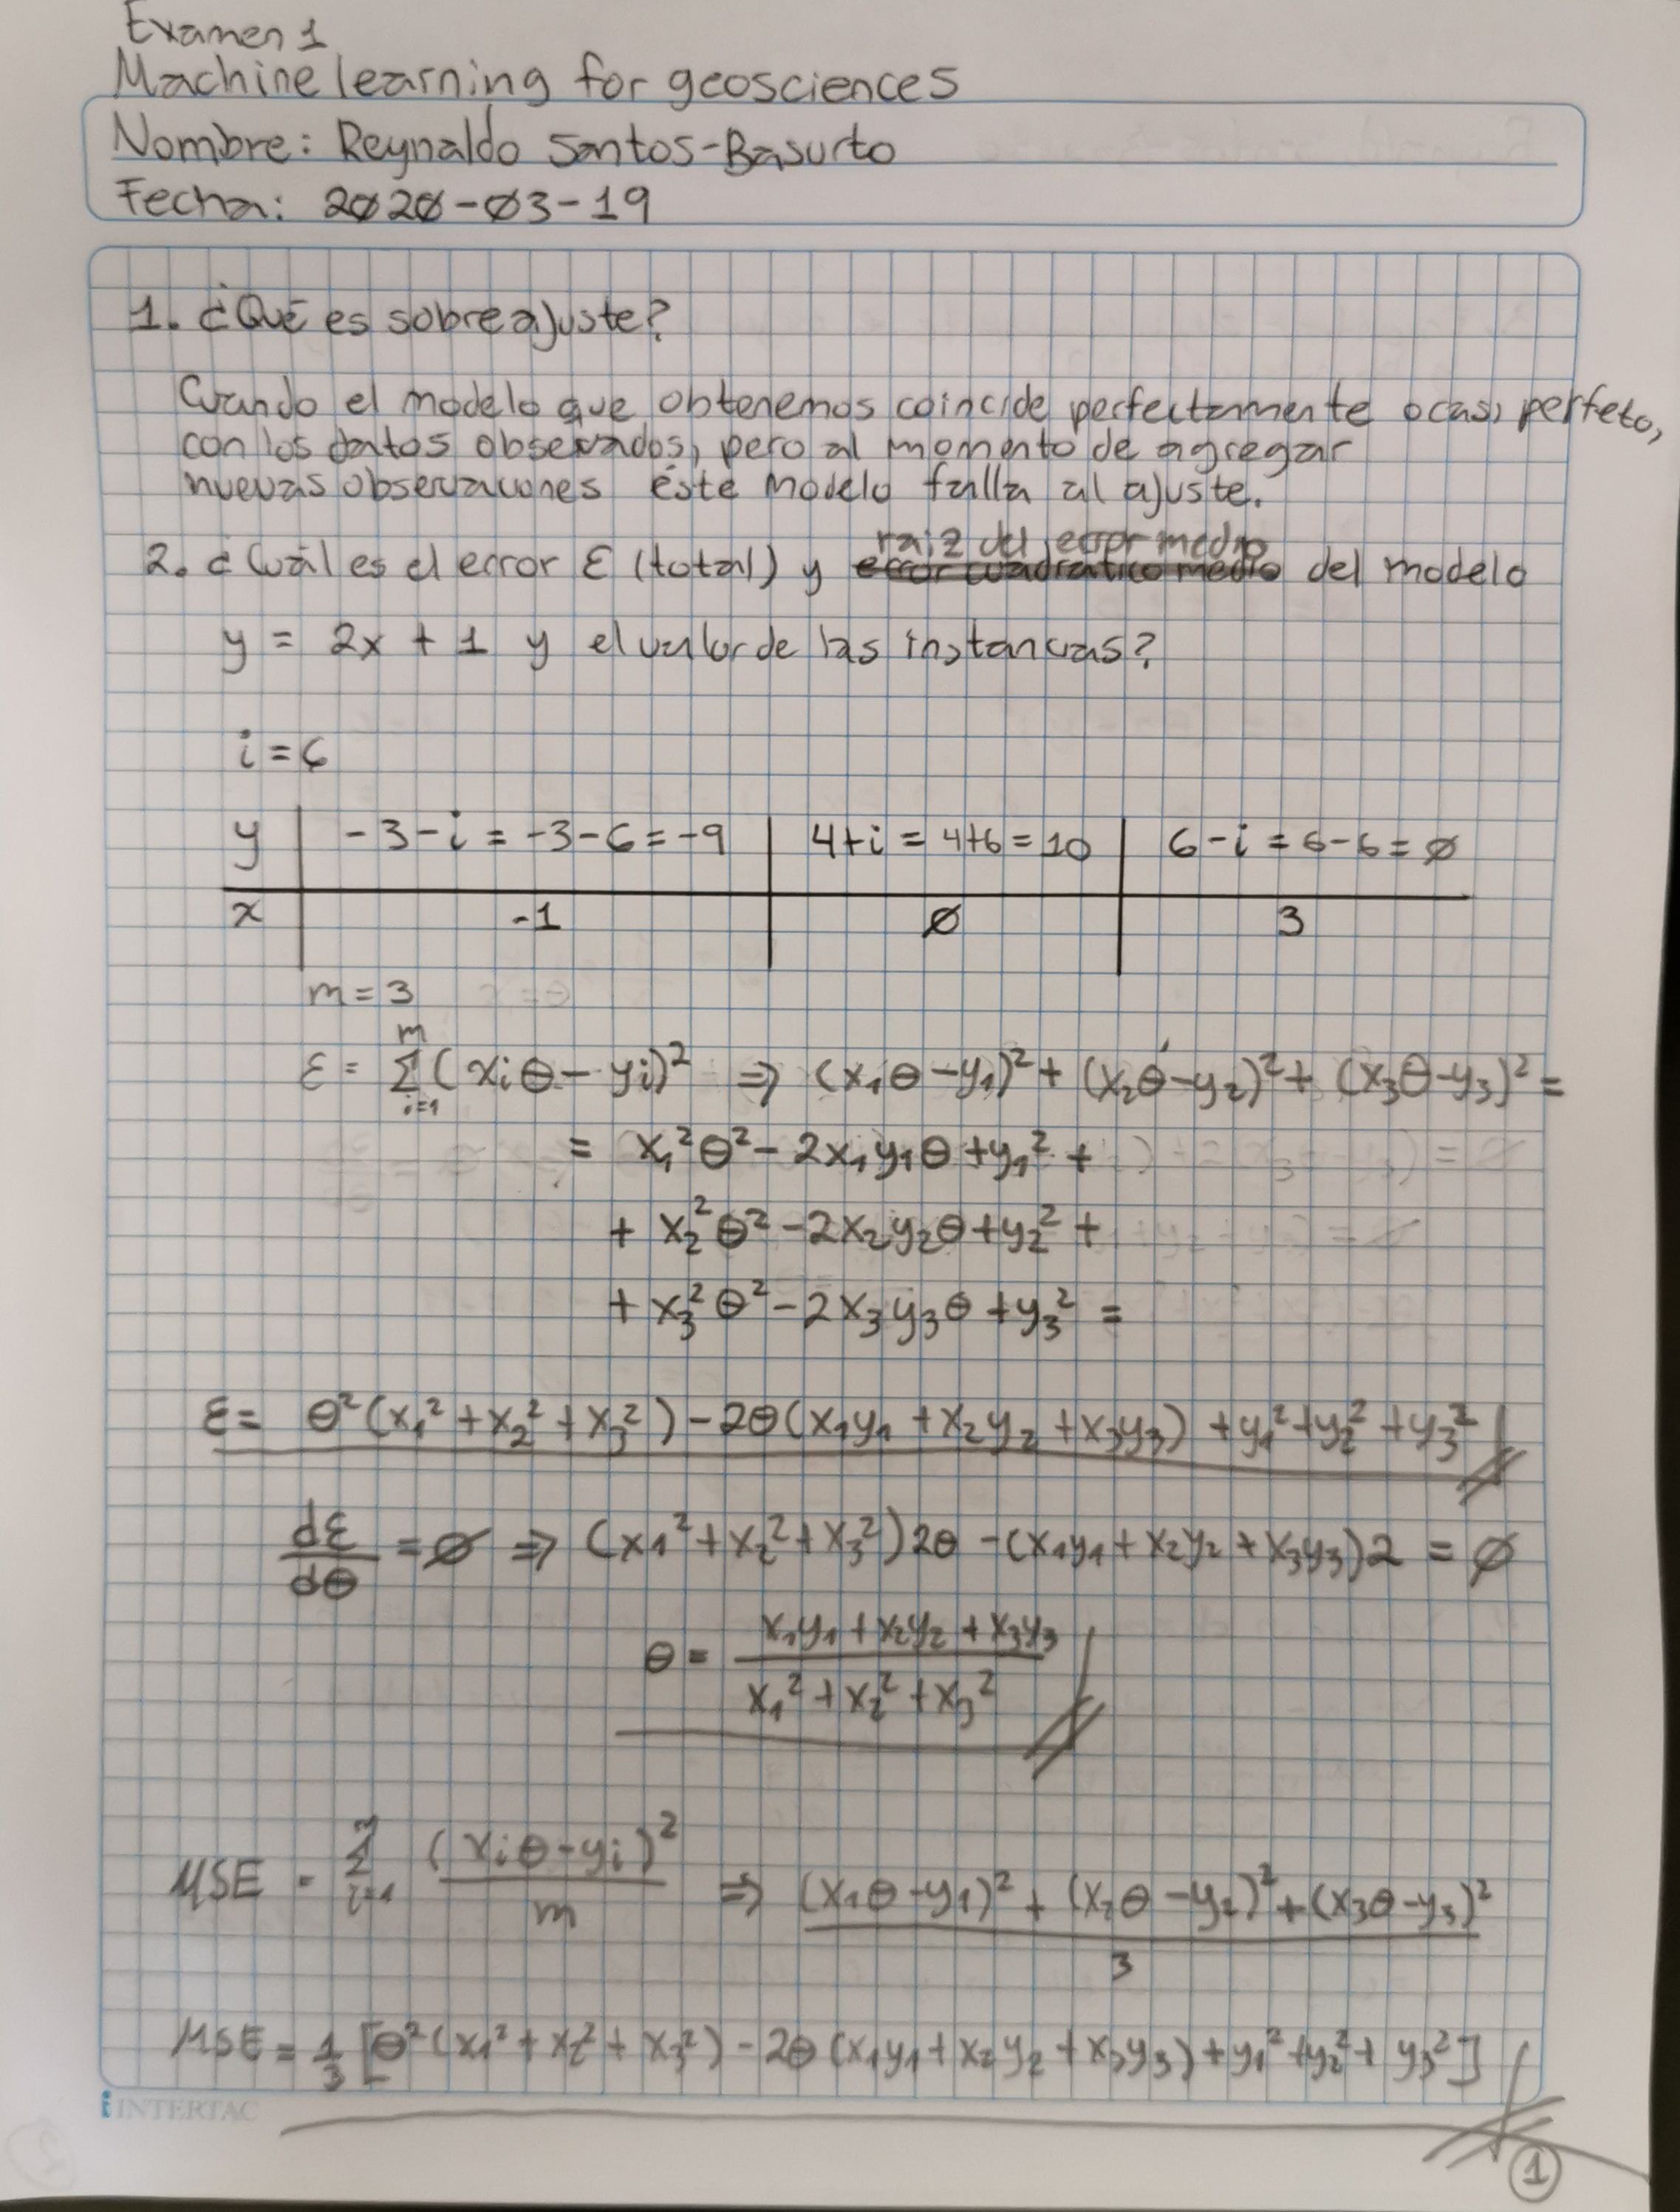 Examen 1
Machine learning for geosciences
Nombre: Reynaldo Santos-Basurto
Fecha: 2020-03-19
1. ¿Qué es sobreajuste?
Cuando el modelo que obtenemos coincide perfectamente o casi perfeto,
con los datos observados, pero al momento de agregar
nuevas observaciones éste modelo falla al ajuste.
raiz del error medio
2. ¿Cuál es el error ε (total) y error cuadratico medio del modelo
y = 2x + 1 y el valor de las instancias?
i = 6
y | -3-i = -3-6 = -9 | 4+i = 4+6 = 10 | 6-i = 6-6 = 0
x | -1 | 0 | 3
m = 3
ε = Σ_{i=1}^{m} (xiθ - yi)² ⇒ (x₁θ-y₁)² + (x₂θ-y₂)² + (x₃θ-y₃)² =
= x₁²θ² - 2x₁y₁θ + y₁² +
+ x₂²θ² - 2x₂y₂θ + y₂² +
+ x₃²θ² - 2x₃y₃θ + y₃² =
ε = θ²(x₁² + x₂² + x₃²) - 2θ(x₁y₁ + x₂y₂ + x₃y₃) + y₁² + y₂² + y₃²
dε/dθ = 0 ⇒ (x₁² + x₂² + x₃²)2θ - (x₁y₁ + x₂y₂ + x₃y₃)2 = 0
θ = (x₁y₁ + x₂y₂ + x₃y₃)/(x₁² + x₂² + x₃²)
MSE = Σ_{i=1} (xiθ - yi)²/m ⇒ ((x₁θ - y₁)² + (x₂θ - y₂)² + (x₃θ - y₃)²)/3
MSE = 1/3 [θ²(x₁² + x₂² + x₃²) - 2θ(x₁y₁ + x₂y₂ + x₃y₃) + y₁² + y₂² + y₃²]
INTERTAC
1